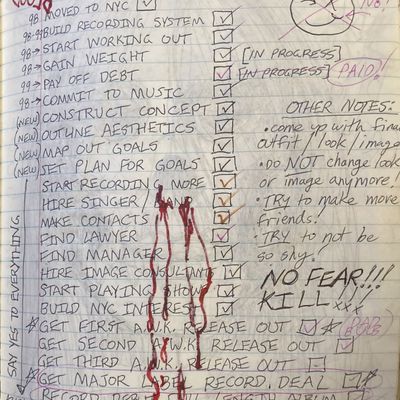 98 MOVED TO NYC
98-99 BUILD RECORDING SYSTEM
98→ START WORKING OUT
98→ GAIN WEIGHT [IN PROGRESS]
99→ PAY OFF DEBT [IN PROGRESS] PAID!
98→ COMMIT TO MUSIC
(NEW) CONSTRUCT CONCEPT
(NEW) OUTLINE AESTHETICS
(NEW) MAP OUT GOALS
(NEW) SET PLAN FOR GOALS
START RECORDING MORE
HIRE SINGER / BAND
MAKE CONTACTS
FIND LAWYER
FIND MANAGER
HIRE IMAGE CONSULTANT
START PLAYING SHOWS
BUILD NYC INTEREST
GET FIRST A.W.K. RELEASE OUT
GET SECOND A.W.K. RELEASE OUT
GET THIRD A.W.K. RELEASE OUT
GET MAJOR LABEL RECORD DEAL
RECORD FULL LENGTH ALBUM
SAY YES TO EVERYTHING
NO!
OTHER NOTES:
• come up with final
outfit / look / image
• do NOT change look
or image anymore!
• TRY to make more
friends!
• TRY to not be
so shy.
NO FEAR!!!
KILL xxx!!!